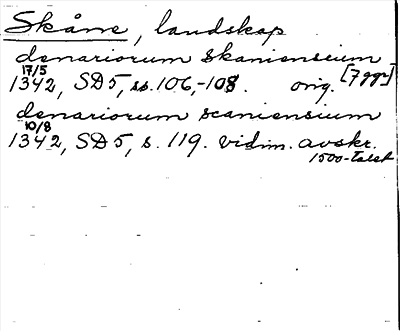 Skåne, landskap
denariorum skaniensium
17/5
1342, SD5, ss. 106,-108. orig. [7 ggr]
denariorum scaniensium
10/8
1342, SD5, s. 119. vidim. avskr.
1500-talet